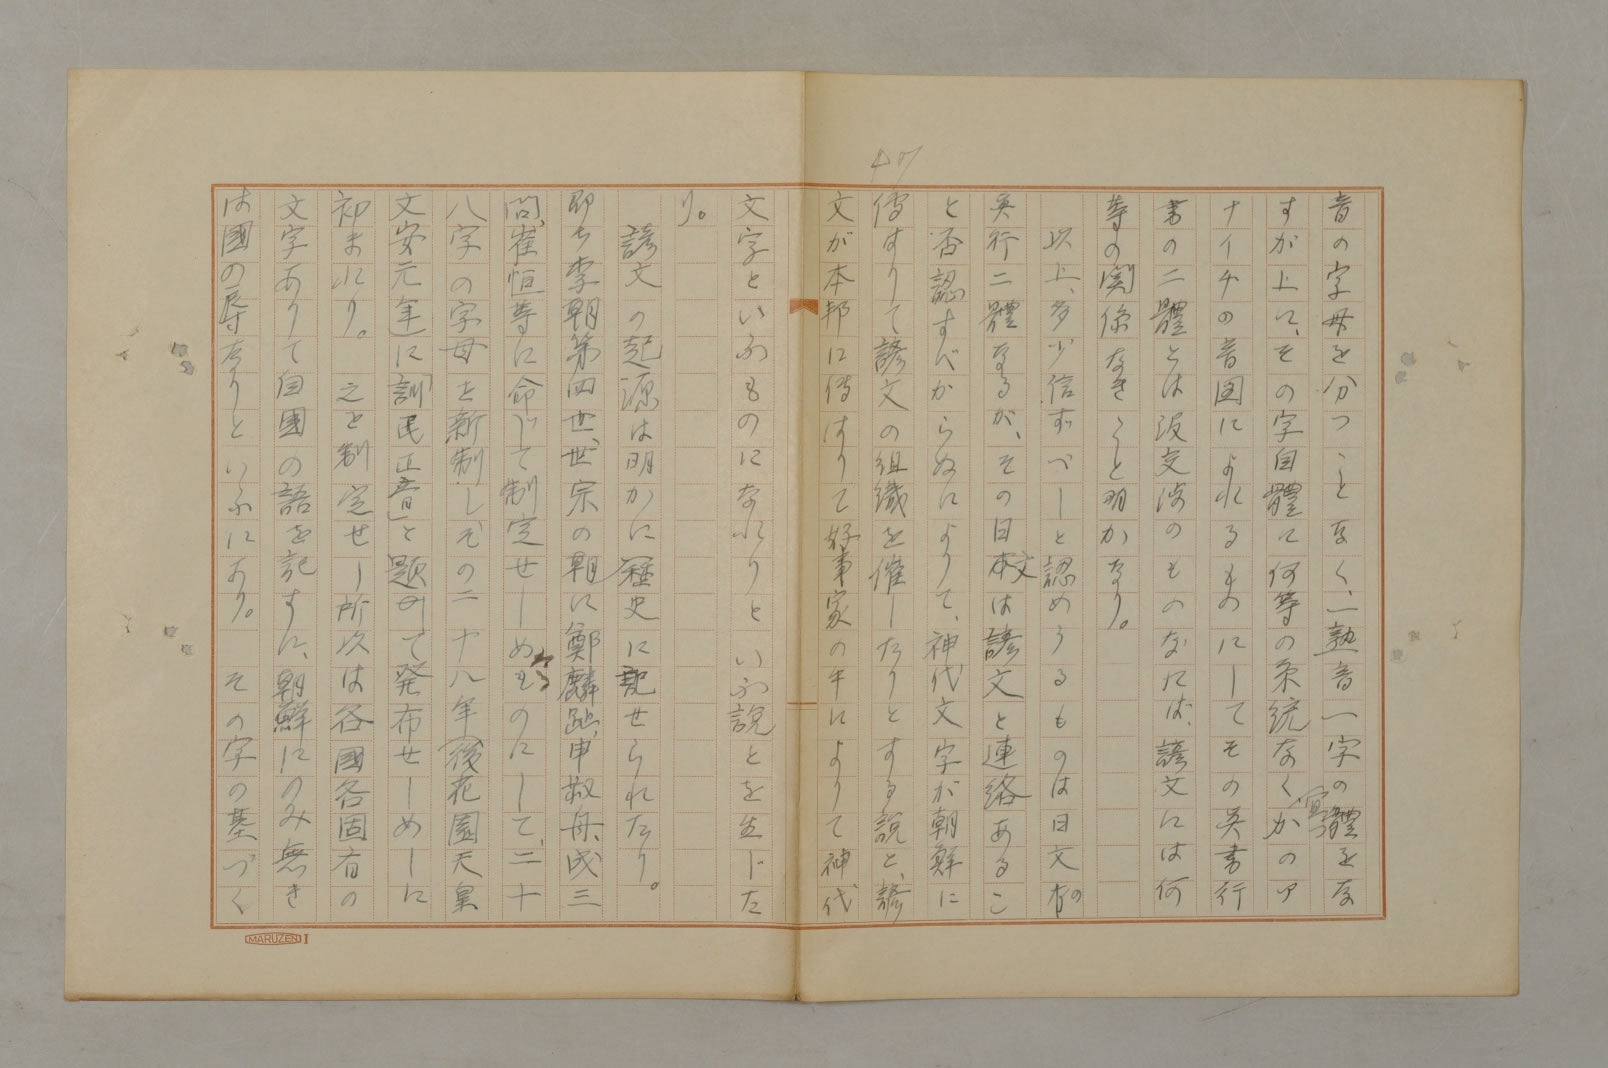 47
音の字母を分つことなく、一熟音一字の體をな
すが上に、その字自體に何等の系統なくかのア
ナイチの音図によれるものにしてその吴書行
書の二體とは没交渉のものなれば、諺文には何
等の関係なきこと明かなり。
以上、多少信ずべしと認めうるものは日文の
吴行二體なるが、その日文は諺文と連絡あるこ
と否認すべからぬによりて、神代文字が朝鮮に
傳はりて諺文の組織を催したりとする説と、諺
文が本邦に傳はりて好事家の手によりて神代
文字といふものになれりといふ説とを生じた
り。
諺文の起源は明かに歴史に記せられたり。
即ち李朝第四世、世宗の朝に鄭麟趾、申叔舟、成三
問、崔恒等に命じて制定せしめしものにして、二十
八字の字母を新制しその二十八年(後花園天皇
文安元年)に「訓民正音」と題して発布せしめしに
初まれり。之を制定せし所以は各國各固有の
文字ありて自國の語を記すに、朝鮮にのみ無き
は國の辱なりといふにあり。その字の基づく
MARUZEN I